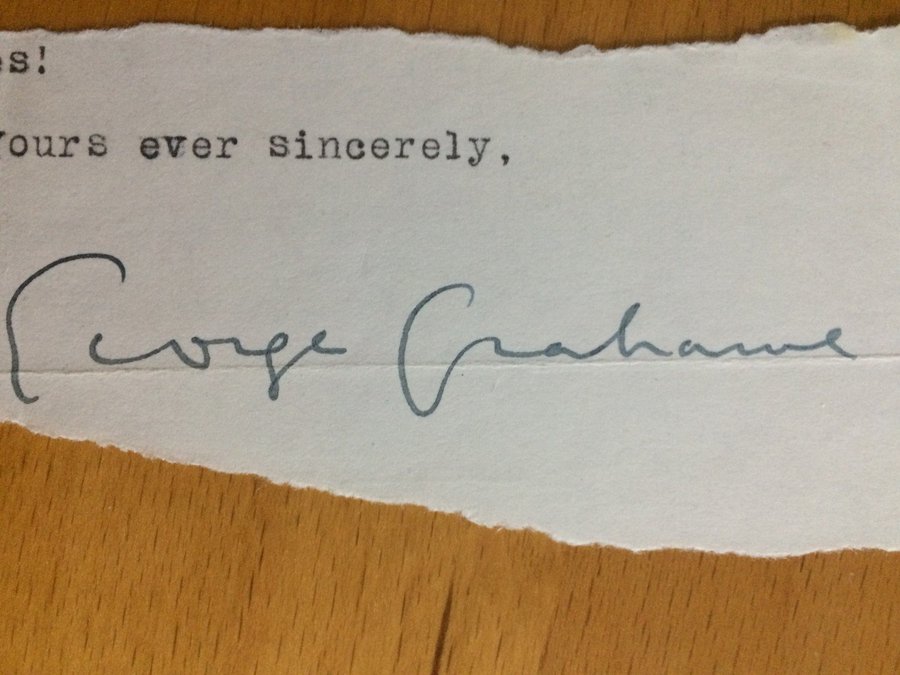 es!
Yours ever sincerely,
George Grahame